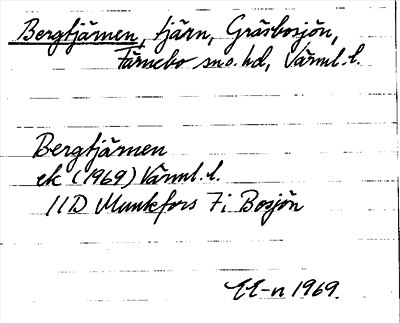 Bergtjärnen, tjärn, Gräsbosjön,
Färnebo sno. hd, Värml. l.
Bergtjärnen
ek (1969) Värml. l.
11D Munkfors 7i Bosjön
EE-n 1969.